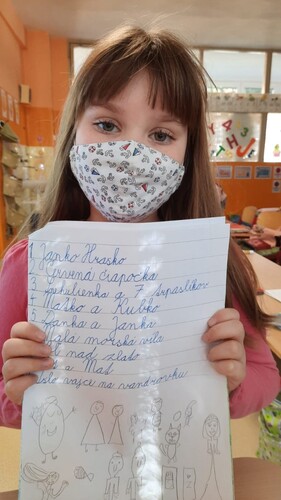 1. Janko Hraško
2. Červená čiapočka
3. Snehulienka a 7 trpaslíkov
4. Maťko a Kubko
5. Danka a Janka
6. Malá morská víla
7. nad zlato
8. a Mať
išlo vajce na vandrovku